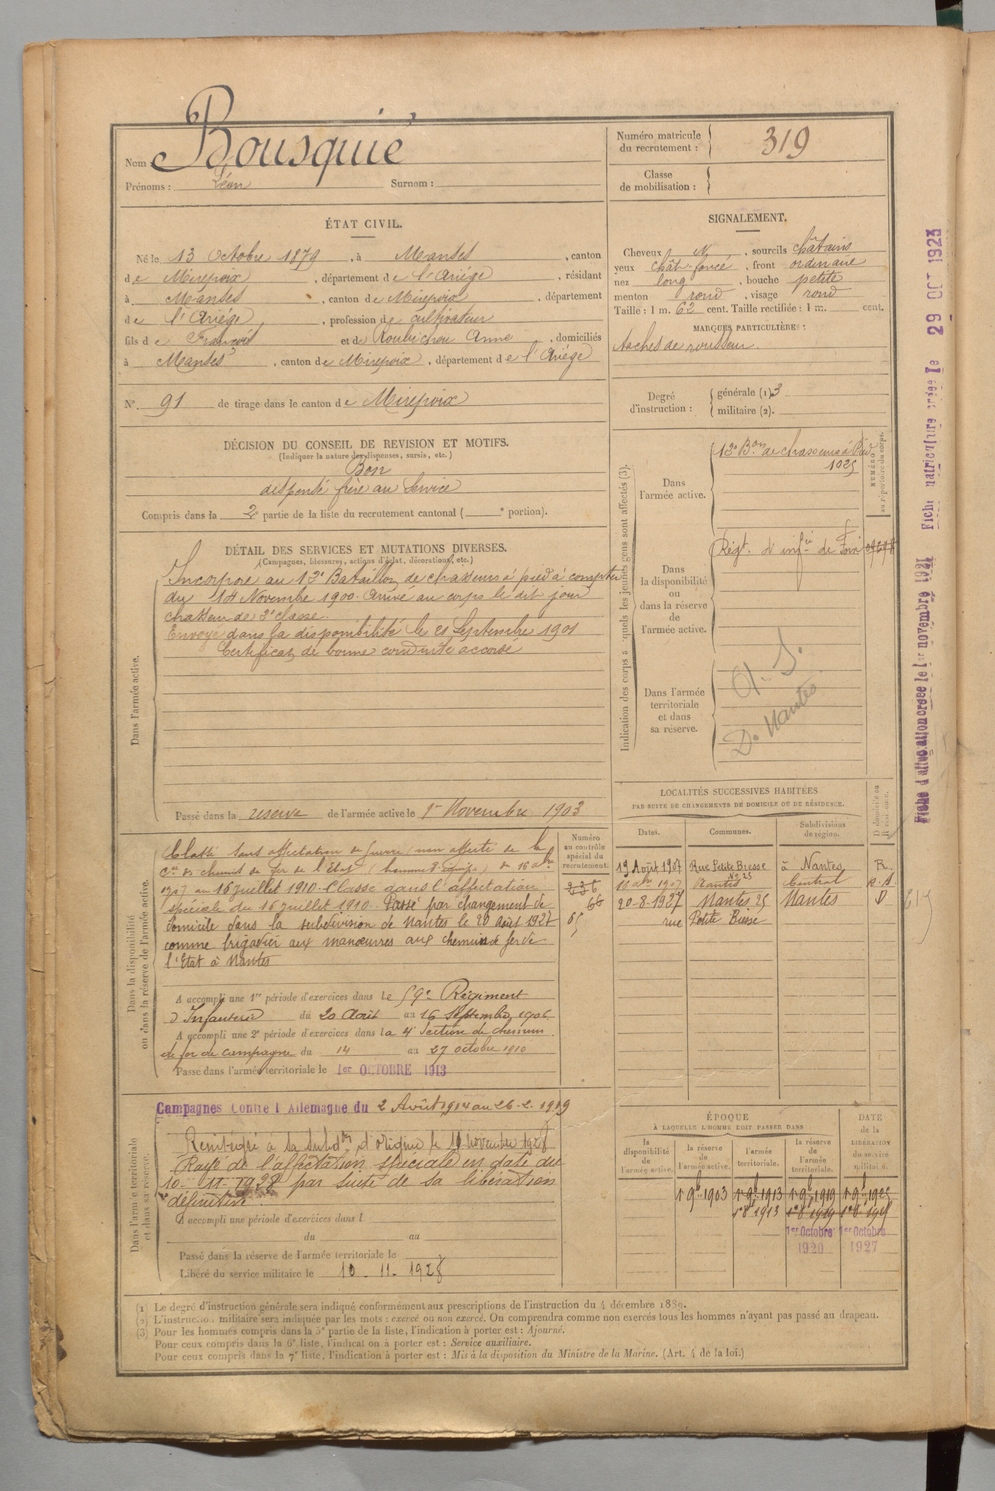 Nom : Bousquié
Prénoms : Léon Surnom :
Numéro matricule du recrutement : 319
Classe de mobilisation :
ÉTAT CIVIL.
Né le 13 Octobre 1879, à Manses, canton
de Mirepoix, département de l'Ariége, résidant
à Manses, canton de Mirepoix, département
de l'Ariége, profession de cultivateur
fils de François et de Roubichou Anne, domiciliés
à Manses, canton de Mirepoix, département de l'Ariége
N° 91 de tirage dans le canton de Mirepoix
SIGNALEMENT.
Cheveux N, sourcils châtains
yeux chât-foncé, front ordinaire
nez long, bouche petite
menton rond, visage rond
Taille : 1 m. 62 cent. Taille rectifiée : 1 m. cent.
MARQUES PARTICULIÈRES :
taches de rousseur.
Degré d'instruction : générale (1) 3
militaire (2).
DÉCISION DU CONSEIL DE REVISION ET MOTIFS.
(Indiquer la nature des dispenses, sursis, etc.)
Bon
dispensé frère au service
Compris dans la 2 partie de la liste du recrutement cantonal ( portion).
DÉTAIL DES SERVICES ET MUTATIONS DIVERSES.
(Campagnes, blessures, actions d'éclat, décorations, etc.)
Dans l'armée active.
Incorporé au 13e Bataillon de chasseurs à pied à compter
du 14 Novembre 1900. Arrivé au corps le dit jour
chasseur de 2e classe.
Envoyé dans la disponibilité le 21 Septembre 1901
Certificat de bonne conduite accordé
Passé dans la réserve de l'armée active le 1er Novembre 1903
Indication des corps auxquels les jeunes gens sont affectés (3).
NUMÉRO au répertoire du corps.
Dans l'armée active.
13e Bon de chasseurs à Pied
1025
Dans la disponibilité ou dans la réserve de l'armée active.
Régt. d'infrie de Foix
Dans l'armée territoriale et dans sa réserve.
A. S.
Don Nantes
Dans la disponibilité ou dans la réserve de l'armée active.
Numéro au contrôle spécial du recrutement.
Classé sans affectation
Cie de chemin de fer de l'état
1907 au 16 juillet 1910. Classé dans l'affectation
spéciale du 16 juillet 1910. Passé par changement de
domicile dans la subdivision de Nantes le 20 Août 1927
comme brigadier aux manœuvres aux chemins de fer de
l'Etat à Nantes
66
A accompli une 1re période d'exercices dans le 59e Régiment
d'Infanterie du 20 Août au 16 Septembre 1906
A accompli une 2e période d'exercices dans la 4e Section de chemins
de fer de campagne du 14 au 27 octobre 1910
Passé dans l'armée territoriale le 1er OCTOBRE 1913
LOCALITÉS SUCCESSIVES HABITÉES
PAR SUITE DE CHANGEMENTS DE DOMICILE OU DE RÉSIDENCE.
Dates. Communes. Subdivisions de région. D domicile ou R résidence.
19 Août 1907 Rue Petite Biesse à Nantes R.
No 25 Nantes Central R.A
20-8-1927 Nantes 25 Nantes D
rue Petite Biesse
619
Dans l'armée territoriale et dans sa réserve.
Campagnes Contre l'Allemagne du 2 Août 1914 au 26-2-1919
Rembrigé à la Subdon d'origine le 10 novembre 1928
Rayé de l'affectation spéciale en date du
10-11-1928 par suite de sa libération
définitive.
A accompli une période d'exercices dans l
du au
Passé dans la réserve de l'armée territoriale le
Libéré du service militaire le 10-11-1928
ÉPOQUE
À LAQUELLE L'HOMME DOIT PASSER DANS
DATE DE LA LIBÉRATION du service militaire.
la disponibilité de l'armée active. la réserve de l'armée active. l'armée territoriale. la réserve de l'armée territoriale.
1er 9bre 1903 1er 9bre 1913 1er 9bre 1919 1er 9bre 1925
1er 8bre 1913
1er Octobre 1920 1er Octobre 1927
(1) Le degré d'instruction générale sera indiqué conformément aux prescriptions de l'instruction du 4 décembre 1889.
(2) L'instruction militaire sera indiquée par les mots : exercé ou non exercé. On comprendra comme non exercés tous les hommes n'ayant pas passé au drapeau.
(3) Pour les hommes compris dans la 5e partie de la liste, l'indication à porter est : Ajourné.
Pour ceux compris dans la 6e liste, l'indication à porter est : Service auxiliaire.
Pour ceux compris dans la 7e liste, l'indication à porter est : Mis à la disposition du Ministre de la Marine. (Art. 4 de la loi.)
Fiche d'affectation créée le 1er novembre 1921 Fiche matriculaire créée le 29 OCT 1923